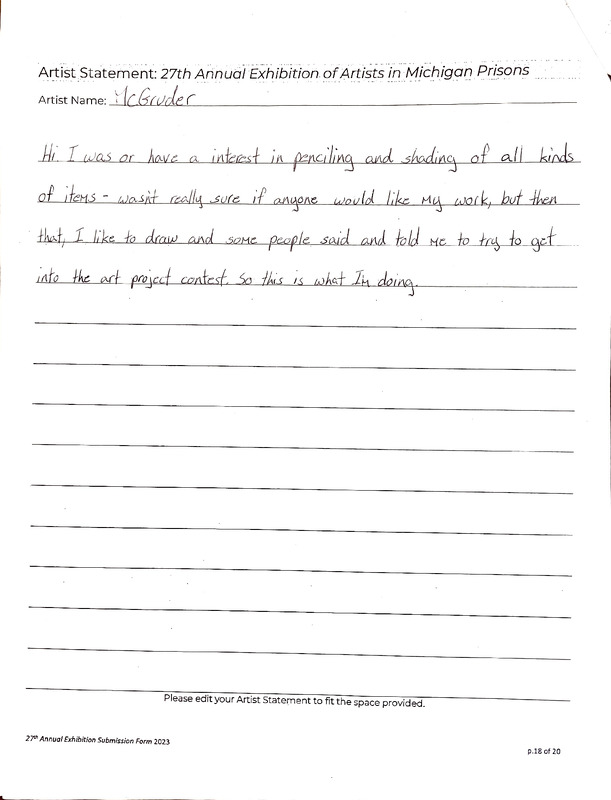 Artist Statement: 27th Annual Exhibition of Artists in Michigan Prisons
Artist Name: McGruder
Hi. I was or have a interest in penciling and shading of all kinds
of items - wasn't really sure if anyone would like my work, but then
that, I like to draw and some people said and told me to try to get
into the art project contest. So this is what Im doing.
Please edit your Artist Statement to fit the space provided.
27th Annual Exhibition Submission Form 2023
p.18 of 20